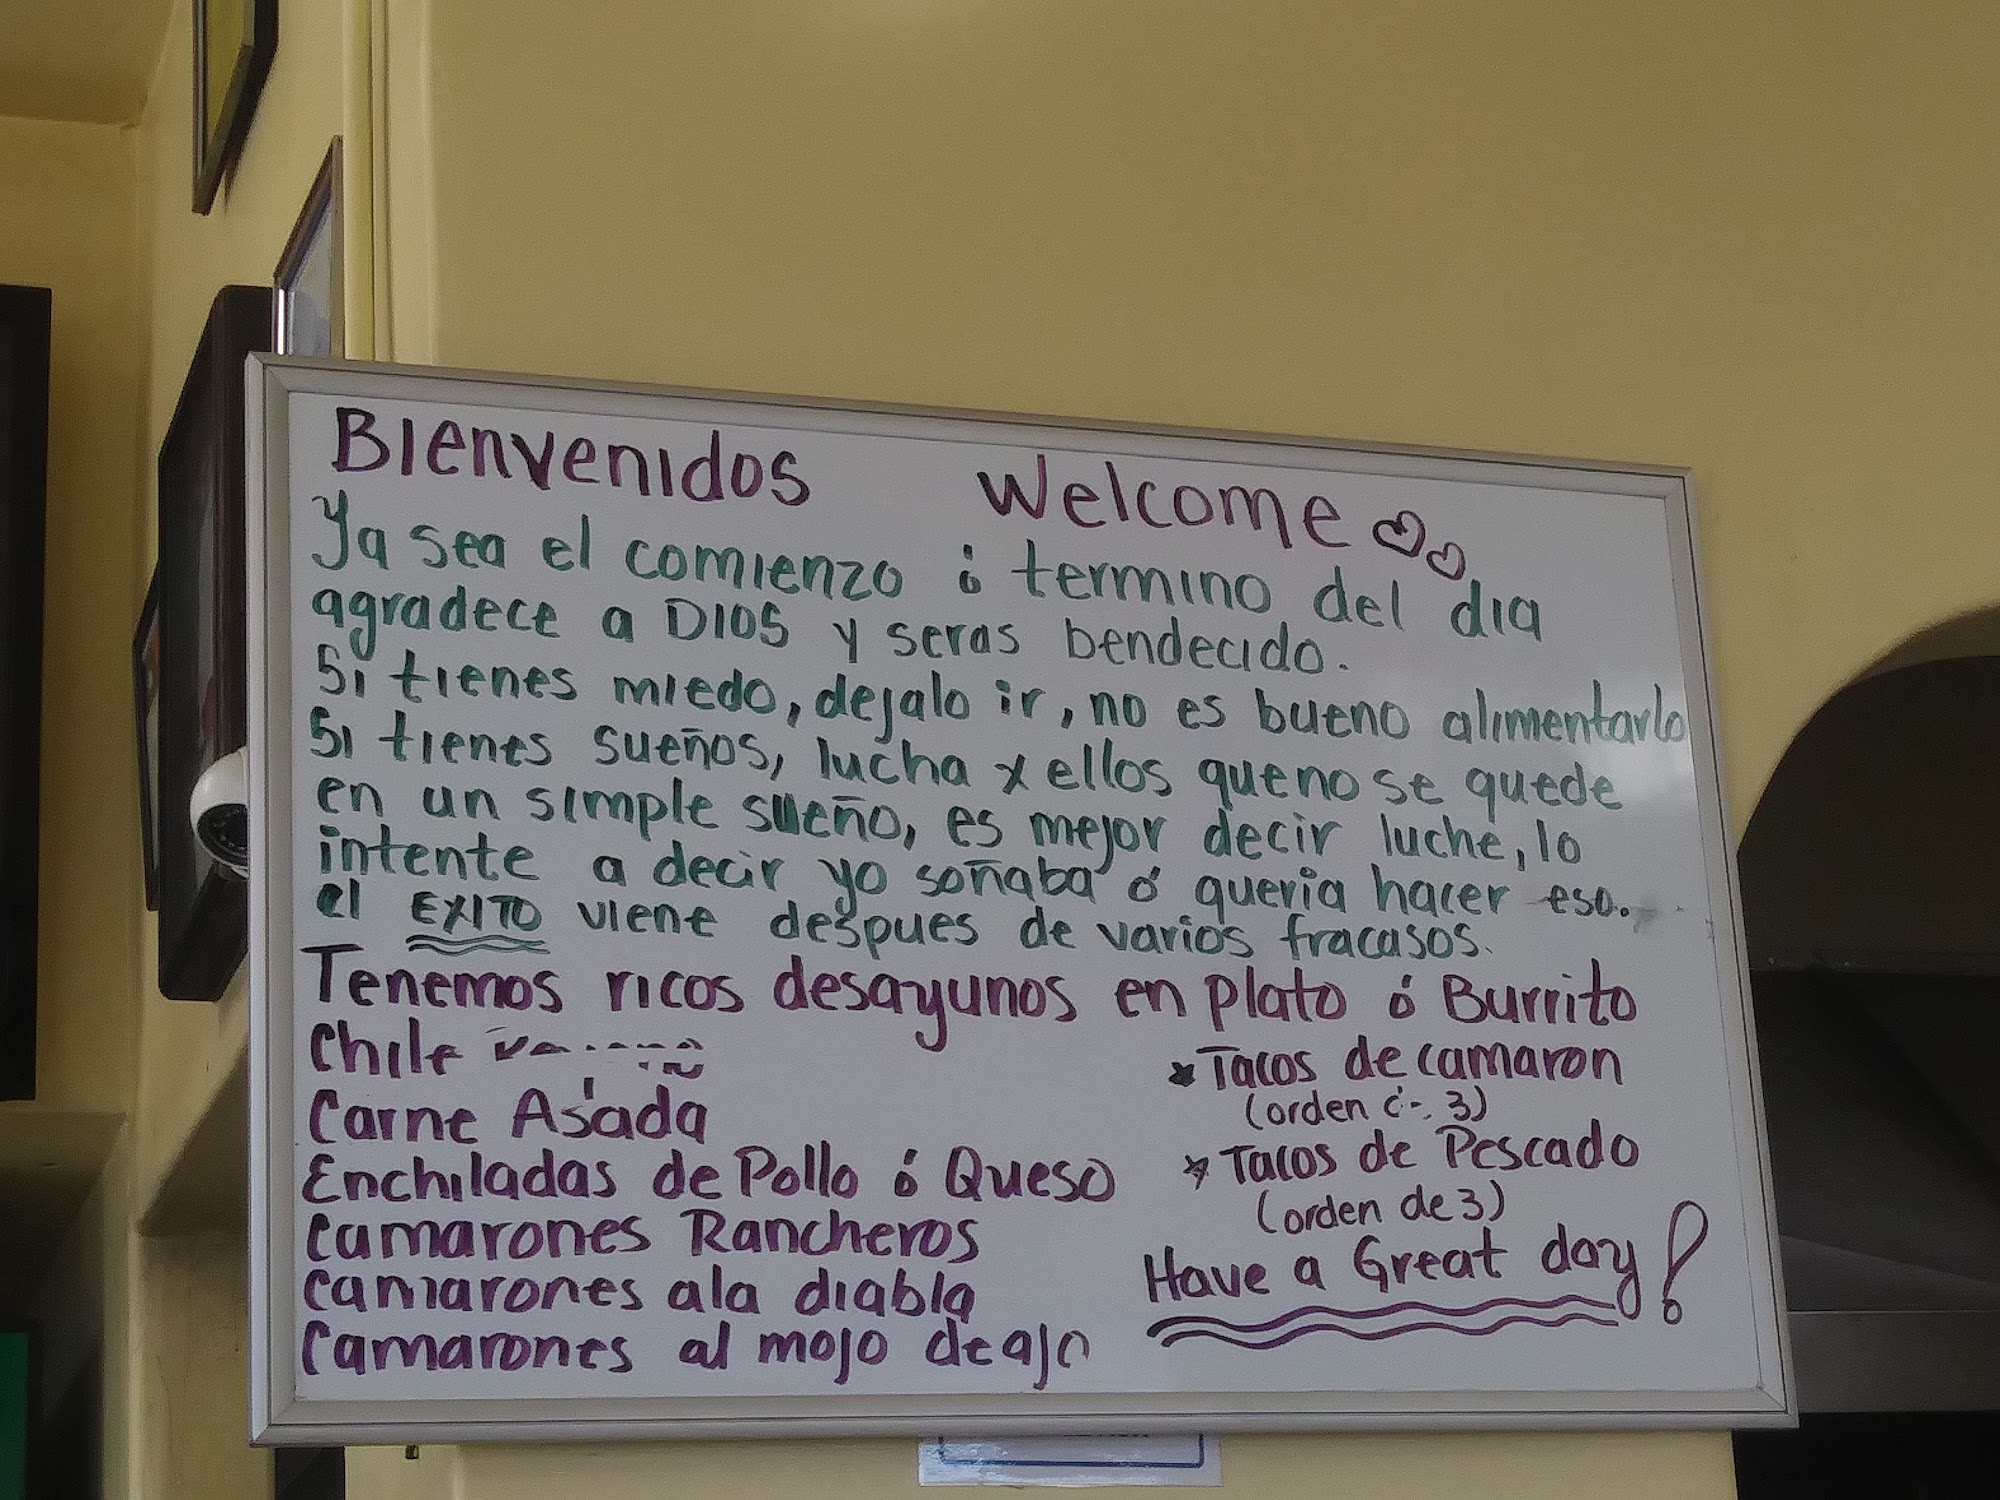 Bienvenidos Welcome
Ya sea el comienzo ó termino del dia
agradece a DIOS y seras bendecido.
Si tienes miedo, dejalo ir, no es bueno alimentarlo
Si tienes sueños, lucha x ellos que no se quede
en un simple sueño, es mejor decir luche, lo
intente a decir yo soñaba ó queria hacer eso.
el EXITO viene despues de varios fracasos.
Tenemos ricos desayunos en plato ó Burrito
Chile
Carne Asada
Enchiladas de Pollo ó Queso
Camarones Rancheros
Camarones ala diabla
Camarones al mojo de ajo
* Tacos de camaron
(orden de 3)
* Tacos de Pescado
(orden de 3)
Have a Great day!